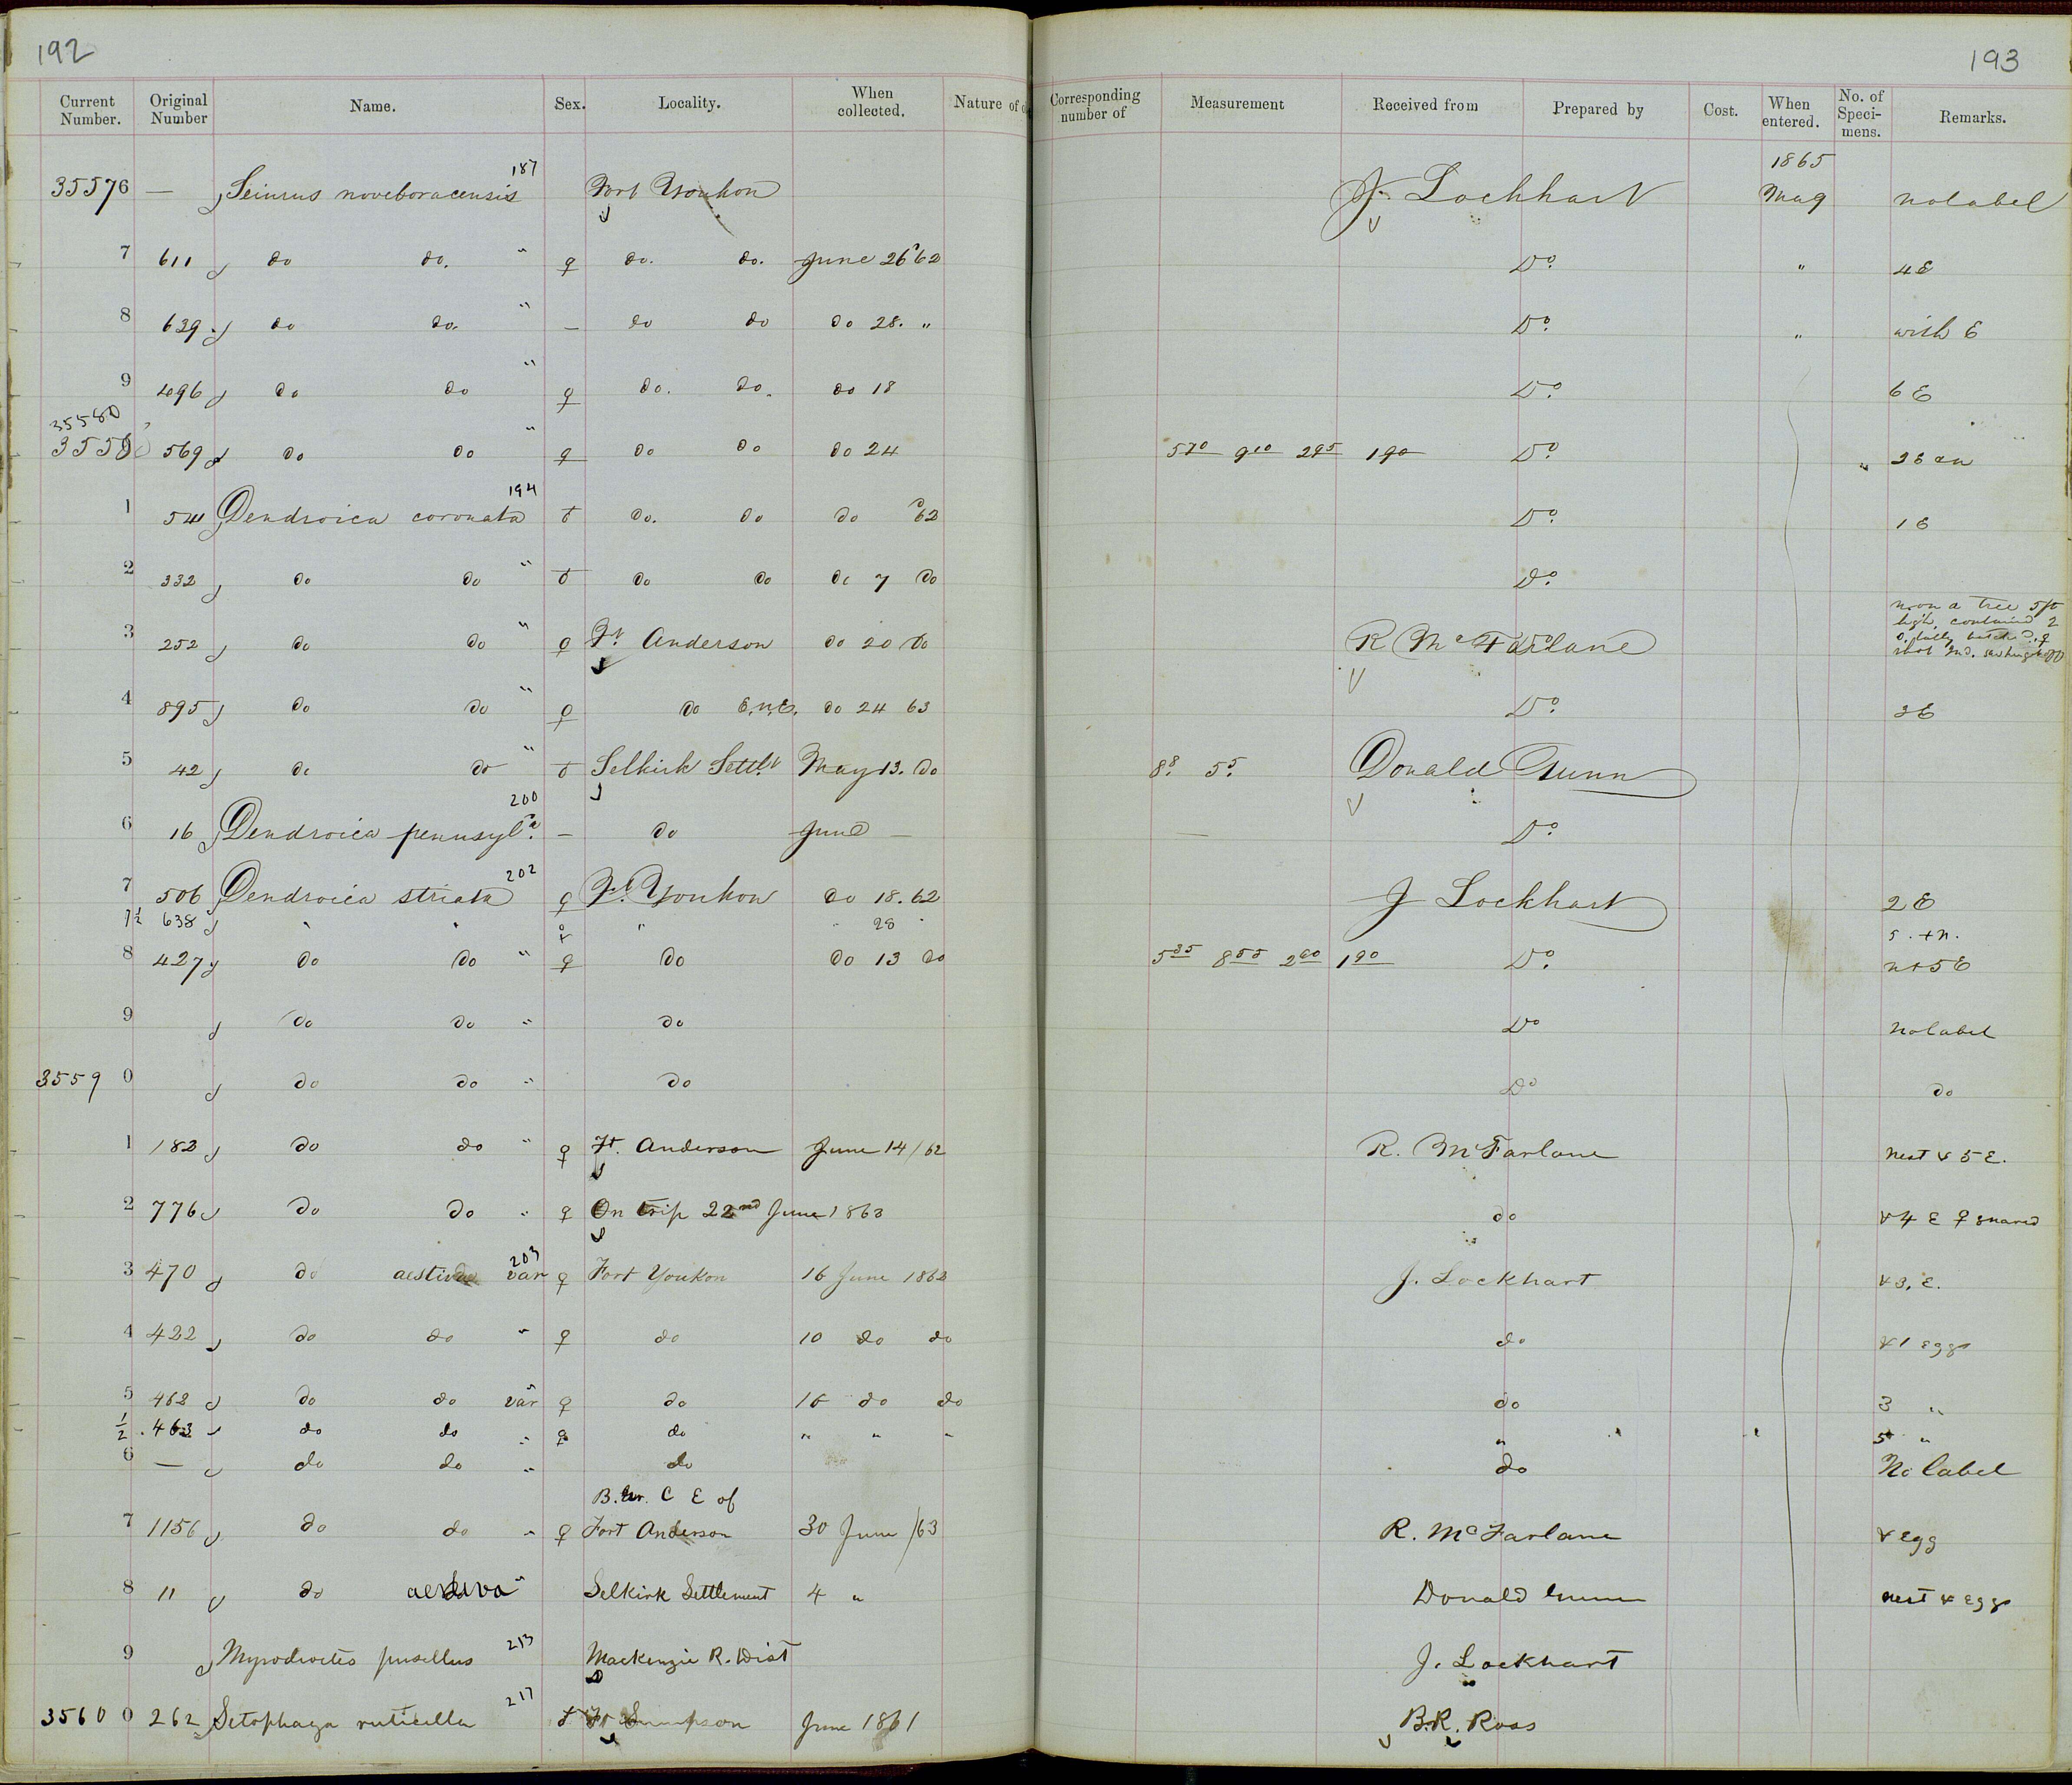 192
193
Current Number. Original Number Name. Sex. Locality. When collected. Nature of Corresponding number of Measurement Received from Prepared by Cost. When entered. No. of Specimens. Remarks.
187 1865
35576 — Seiurus noveboracensis Fort Youkon J. Lockhart May no label
7 611 do do. " ♀ do. do. June 26 62 Do. " 4 E
8 639 do do. " — do do do 28. " Do. " with E
9 496 do do " ♀ do. do. do 18 Do. 6 E
35580
3558 569 do do " ♀ do do do 24 5 70 9 10 2 95 1 90 Do. "
194
1 541 Dendroica coronata ♂ do. do do 62 Do. 1 E
2 332 do do " ♂ do do do 7 do Do.
3 252 do do " ♀ Ft Anderson do 20 do R McFarlane on a tree 5 ft high, contained 2
4 895 do do " ♀ do E.N.E. do 24 63 Do. 3 E
5 42 do do " ♂ Selkirk Settlt May 13. do 8.8 5.5 Donald Gunn
200
6 16 Dendroica pennsyla. — do June — — Do.
202
7 506 Dendroica striata ♀ Ft. Youkon do 18. 62 J Lockhart 2 E
7½ 638 " " ♀ " " 28 " 5. + n.
8 427 do do " ♀ do do 13 do 5 35 8 55 2 60 1 90 Do. n + 5 E
9 do do " do Do no label
35590 do do " do Do do
1 182 do do " ♀ Ft. Anderson June 14/62 R. McFarlane nest & 5 E.
2 776 do do " ♀ On trip 22nd June 1863 do & 4 E ♀ snared
203
3 470 do aestiva var ♀ Fort Youkon 16 June 1862 J. Lockhart & 3. E.
4 422 do do " ♀ do 10 do do do & 1 egg
5 462 do do var ♀ do 16 do do do 3 "
½ 463 do do " ♀ do " " " " 5 "
6 — do do " do do No label
B. C E of
7 1156 do do " ♀ Fort Anderson 30 June /63 R. McFarlane & egg
8 11 do aestiva " Selkirk Settlement 4 " Donald Gunn nest & eggs
9 Myiodioctes pusillus 213 Mackenzie R. Dist J. Lockhart
217
35600 262 Setophaga ruticilla ♂ Ft Simpson June 1861 B.R. Ross